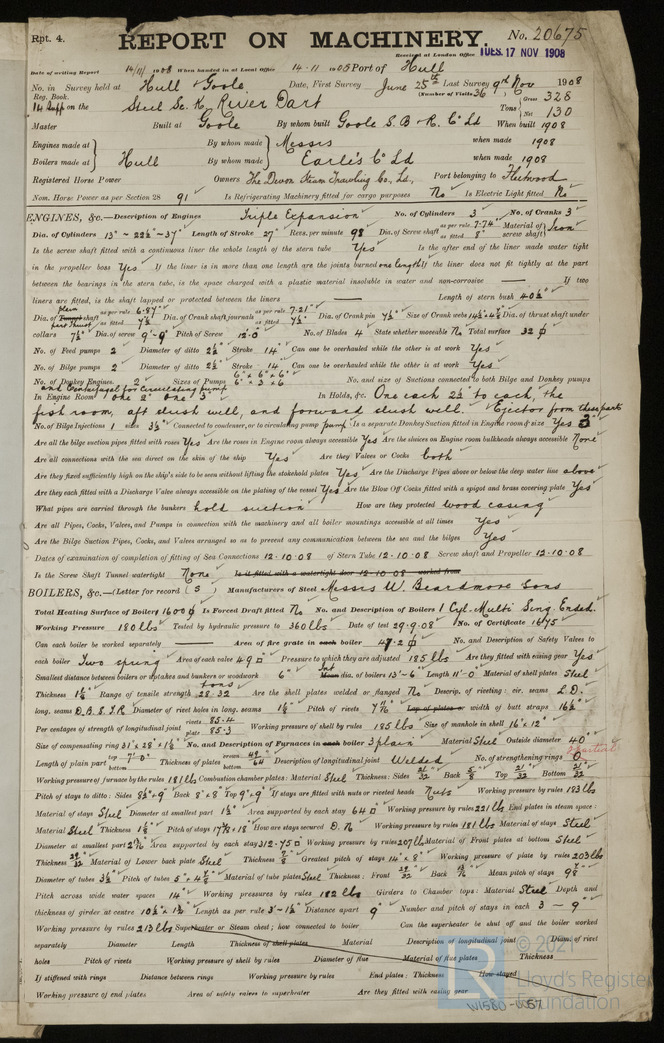 Rpt. 4.
REPORT ON MACHINERY. No. 20675
Received at London Office TUES. 17 NOV 1908
Date of writing Report 14/11/1908 When handed in at Local Office 14.11.1908 Port of Hull
No. in Survey held at Hull & Goole Date, First Survey June 25th Last Survey 9th Nov 1908
Reg. Book. (Number of Visits 36)
on the Steel Sc. K. River Dart Tons Gross 328 Net 130
Master Built at Goole By whom built Goole S.B. & R. Co Ld When built 1908
Engines made at By whom made Messrs when made 1908
Boilers made at Hull By whom made Earle's Co Ld when made 1908
Registered Horse Power Owners The Devon Steam Trawling Co., Ld., Port belonging to Fleetwood
Nom. Horse Power as per Section 28 91 Is Refrigerating Machinery fitted for cargo purposes No Is Electric Light fitted No
ENGINES, &c.—Description of Engines Triple Expansion No. of Cylinders 3 No. of Cranks 3
Dia. of Cylinders 13" ~ 22½" ~ 37" Length of Stroke 27" Revs. per minute 98 Dia. of Screw shaft as per rule 7.74 as fitted 8" Material of screw shaft Iron
Is the screw shaft fitted with a continuous liner the whole length of the stern tube Yes Is the after end of the liner made water tight
in the propeller boss Yes If the liner is in more than one length are the joints burned one length If the liner does not fit tightly at the part
between the bearings in the stern tube, is the space charged with a plastic material insoluble in water and non-corrosive — If two
liners are fitted, is the shaft lapped or protected between the liners — Length of stern bush 40½"
Dia. of shaft as per rule 6.87" as fitted 7½" Dia. of Crank shaft journals as per rule 7.21" as fitted 7½" Dia. of Crank pin 7½" Size of Crank webs 14½ x 4¾ Dia. of thrust shaft under
collars 7½" Dia. of screw 9'-9" Pitch of Screw 12'-0" No. of Blades 4 State whether moveable No Total surface 32
No. of Feed pumps 2 Diameter of ditto 2½" Stroke 14" Can one be overhauled while the other is at work Yes
No. of Bilge pumps 2 Diameter of ditto 2½" Stroke 14" Can one be overhauled while the other is at work Yes
No. of Donkey Engines 2 Sizes of Pumps 6" x 6" x 6" 6" x 3 x 6 No. and size of Suctions connected to both Bilge and Donkey pumps
and Centrifugal for Circulating pump
In Engine Room one 2" one 3" In Holds, &c. One each 2½" to each, the
fish room, aft slush well, and forward slush well. Ejector from these parts
No. of Bilge Injections 1 sizes 3½" Connected to condenser, or to circulating pump pump Is a separate Donkey Suction fitted in Engine room & size Yes 3"
Are all the bilge suction pipes fitted with roses Yes Are the roses in Engine room always accessible Yes Are the sluices on Engine room bulkheads always accessible None
Are all connections with the sea direct on the skin of the ship Yes Are they Valves or Cocks both
Are they fixed sufficiently high on the ship's side to be seen without lifting the stokehold plates Yes Are the Discharge Pipes above or below the deep water line above
Are they each fitted with a Discharge Valve always accessible on the plating of the vessel Yes Are the Blow Off Cocks fitted with a spigot and brass covering plate Yes
What pipes are carried through the bunkers hold suction How are they protected wood casing
Are all Pipes, Cocks, Valves, and Pumps in connection with the machinery and all boiler mountings accessible at all times Yes
Are the Bilge Suction Pipes, Cocks, and Valves arranged so as to prevent any communication between the sea and the bilges Yes
Dates of examination of completion of fitting of Sea Connections 12.10.08 of Stern Tube 12.10.08 Screw shaft and Propeller 12.10.08
Is the Screw Shaft Tunnel watertight None Is it fitted with a watertight door worked from
BOILERS, &c.—(Letter for record (S) Manufacturers of Steel Messrs W. Beardmore Sons
Total Heating Surface of Boilers 1600 Is Forced Draft fitted No No. and Description of Boilers 1 Cyl. Multi Sing. Ended.
Working Pressure 180 lbs Tested by hydraulic pressure to 360 lbs Date of test 29.9.08 No. of Certificate 1675
Can each boiler be worked separately — Area of fire grate in each boiler 47.2 No. and Description of Safety Valves to
each boiler Two spring Area of each valve 4.9 Pressure to which they are adjusted 185 lbs Are they fitted with easing gear Yes
Smallest distance between boilers or uptakes and bunkers or woodwork 6" Mean dia. of boilers 13'-6" Length 11'-0" Material of shell plates Steel
Thickness 1⅛" Range of tensile strength 28-32 tons Are the shell plates welded or flanged No Descrip. of riveting: cir. seams L.D.
long. seams D.B.S.T.R Diameter of rivet holes in long. seams 1⅛" Pitch of rivets 7 Lap of plates or width of butt straps 16½"
Per centages of strength of longitudinal joint rivets 85.4 plate 85.3 Working pressure of shell by rules 185 lbs Size of manhole in shell 16" x 12"
Size of compensating ring 31" x 28" x 1⅛" No. and Description of Furnaces in each boiler 3 plain Material Steel Outside diameter 40"
Length of plain part top 7'-0" bottom Thickness of plates crown bottom Description of longitudinal joint Welded No. of strengthening rings 0
Working pressure of furnace by the rules 181 lbs Combustion chamber plates: Material Steel Thickness: Sides 21/32 Back 5/8 Top 21/32 Bottom 21/32
Pitch of stays to ditto: Sides 8½" x 9" Back 8" x 8" Top 9" x 9" If stays are fitted with nuts or riveted heads Nuts Working pressure by rules 183 lbs
Material of stays Steel Diameter at smallest part 1½" Area supported by each stay 64 Working pressure by rules 221 lbs End plates in steam space:
Material Steel Thickness Pitch of stays 17½ x 18 How are stays secured D.N. Working pressure by rules 181 lbs Material of stays Steel
Diameter at smallest part Area supported by each stay 312.75 Working pressure by rules 207 lbs Material of Front plates at bottom Steel
Thickness 29/32 Material of Lower back plate Steel Thickness 7/8 Greatest pitch of stays 14" x 8" Working pressure of plate by rules 203 lbs
Diameter of tubes 3½" Pitch of tubes Material of tube plates Steel Thickness: Front 29/32 Back Mean pitch of stays 9
Pitch across wide water spaces 14" Working pressures by rules 182 lbs Girders to Chamber tops: Material Steel Depth and
thickness of girder at centre 10½ x 1¾ Length as per rule 3'-1½" Distance apart 9" Number and pitch of stays in each 3 - 9"
Working pressure by rules 213 lbs Superheater or Steam chest; how connected to boiler Can the superheater be shut off and the boiler worked
separately Diameter Length Thickness of shell plates Material Description of longitudinal joint Diam. of rivet
holes Pitch of rivets Working pressure of shell by rules Diameter of flue Material of flue plates Thickness
If stiffened with rings Distance between rings Working pressure by rules End plates: Thickness How stayed
Working pressure of end plates Area of safety valves to superheater Are they fitted with easing gear
© 2021
Lloyd's Register
Foundation
W1580-0057